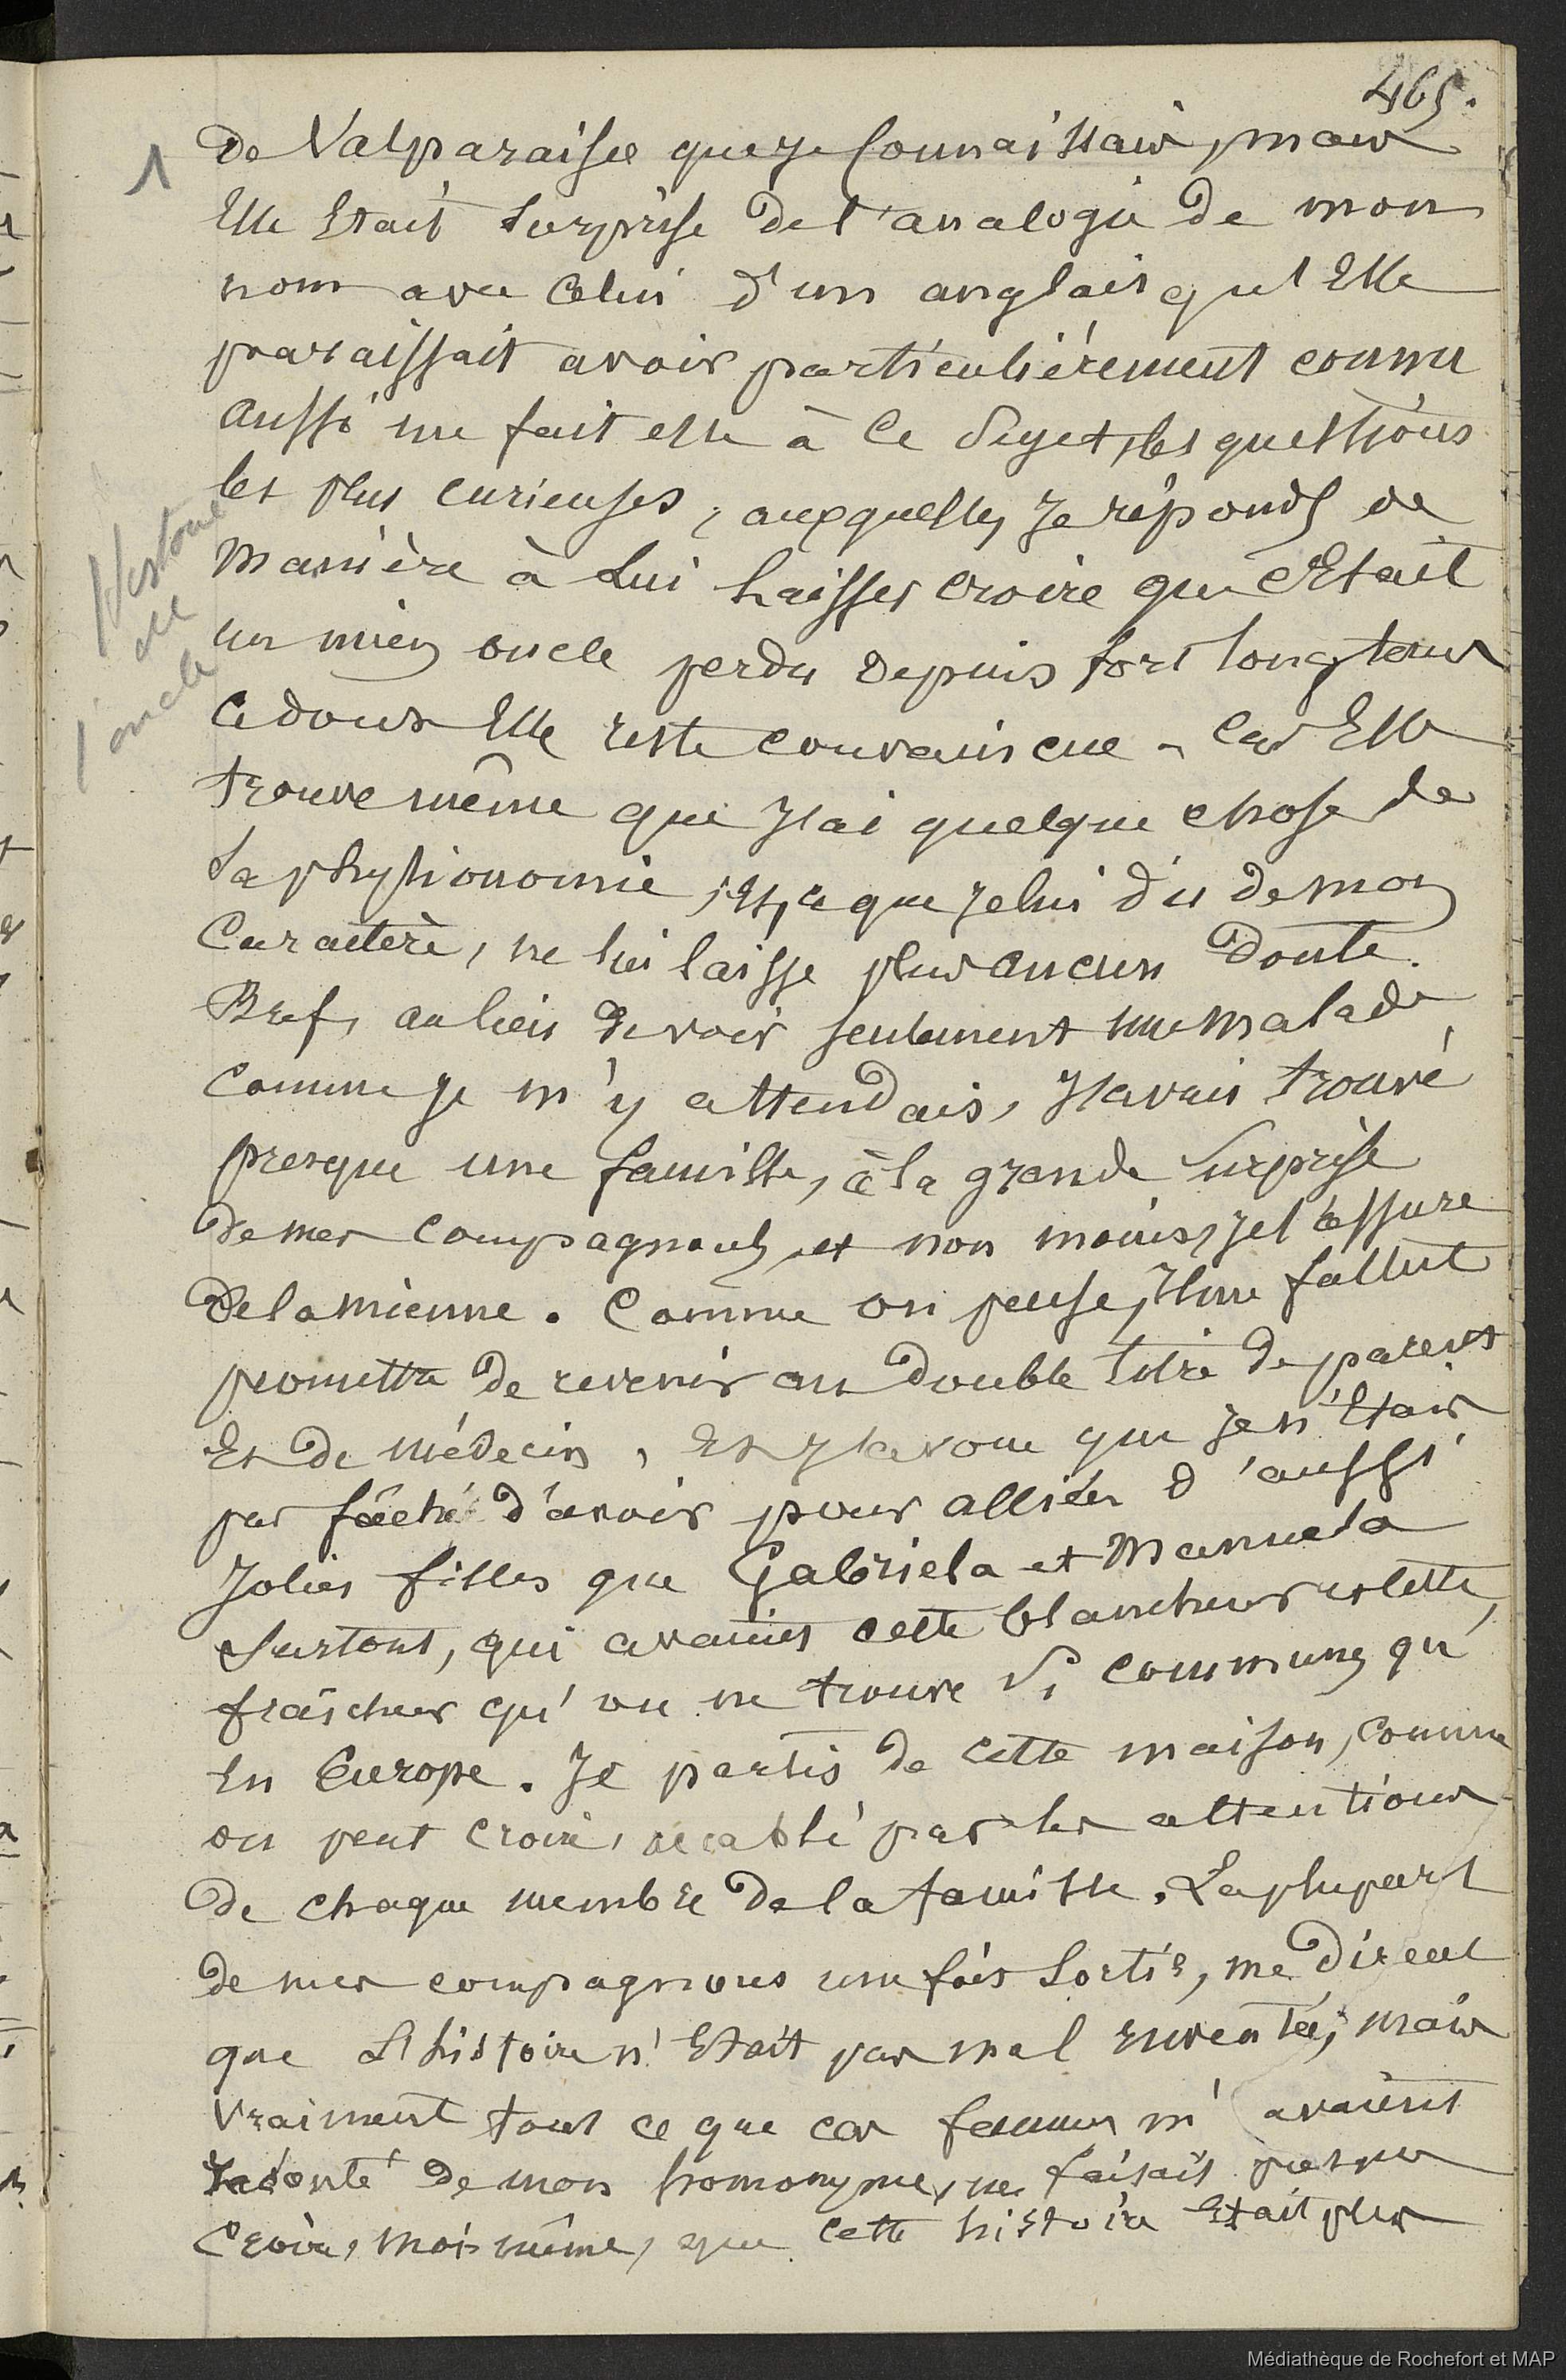 465.
1
de Valparaiso que je connaissais, mais
Elle Etait surprise de l'analogie de mon
nom avec celui d'un anglais qu'Elle
paraissait avoir particulièrement connu
aussi me fait elle à ce sujet, les questions
les plus curieuses, auxquelles je réponds de
manière à lui laisser croire que c'Etait
un mien oncle perdu depuis fort longtems
ce dont Elle reste convaincue - car Elle
trouve même que j'ai quelque chose de
sa physionomie, et, ce que je lui dis de mon
caractère, ne lui laisse plus aucun doute.
Bref, au lieu de voir seulement une malade
comme je m'y attendais, j'avais trouvé
presque une famille, à la grande surprise
de mes compagnons, et non moins, je l'assure
de la mienne. Comme on pense, il me fallut
promettre de revenir au double titre de parent
Et de médecin, Et j'avoue que je n'Etais
pas fâché d'avoir pour alliées d'aussi
jolies filles que Gabriela et Manuela
surtout, qui avaient cette blancheur et cette,
fraîcheur qu'on ne trouve si commune qu'
En Europe. Je partis de cette maison, comme
on peut croire, accablé par les attentions
de chaque membre de la famille. La plupart
de mes compagnons une fois sortis, me dirent
que l'histoire n'Etait pas mal inventée, mais
vraiment tout ce que ces femmes m'avaient
raconté de mon homonyme, me faisait presque
croire, moi-même, que cette histoire Etait plus
Histoire
de
l'oncle
Médiathèque de Rochefort et MAP